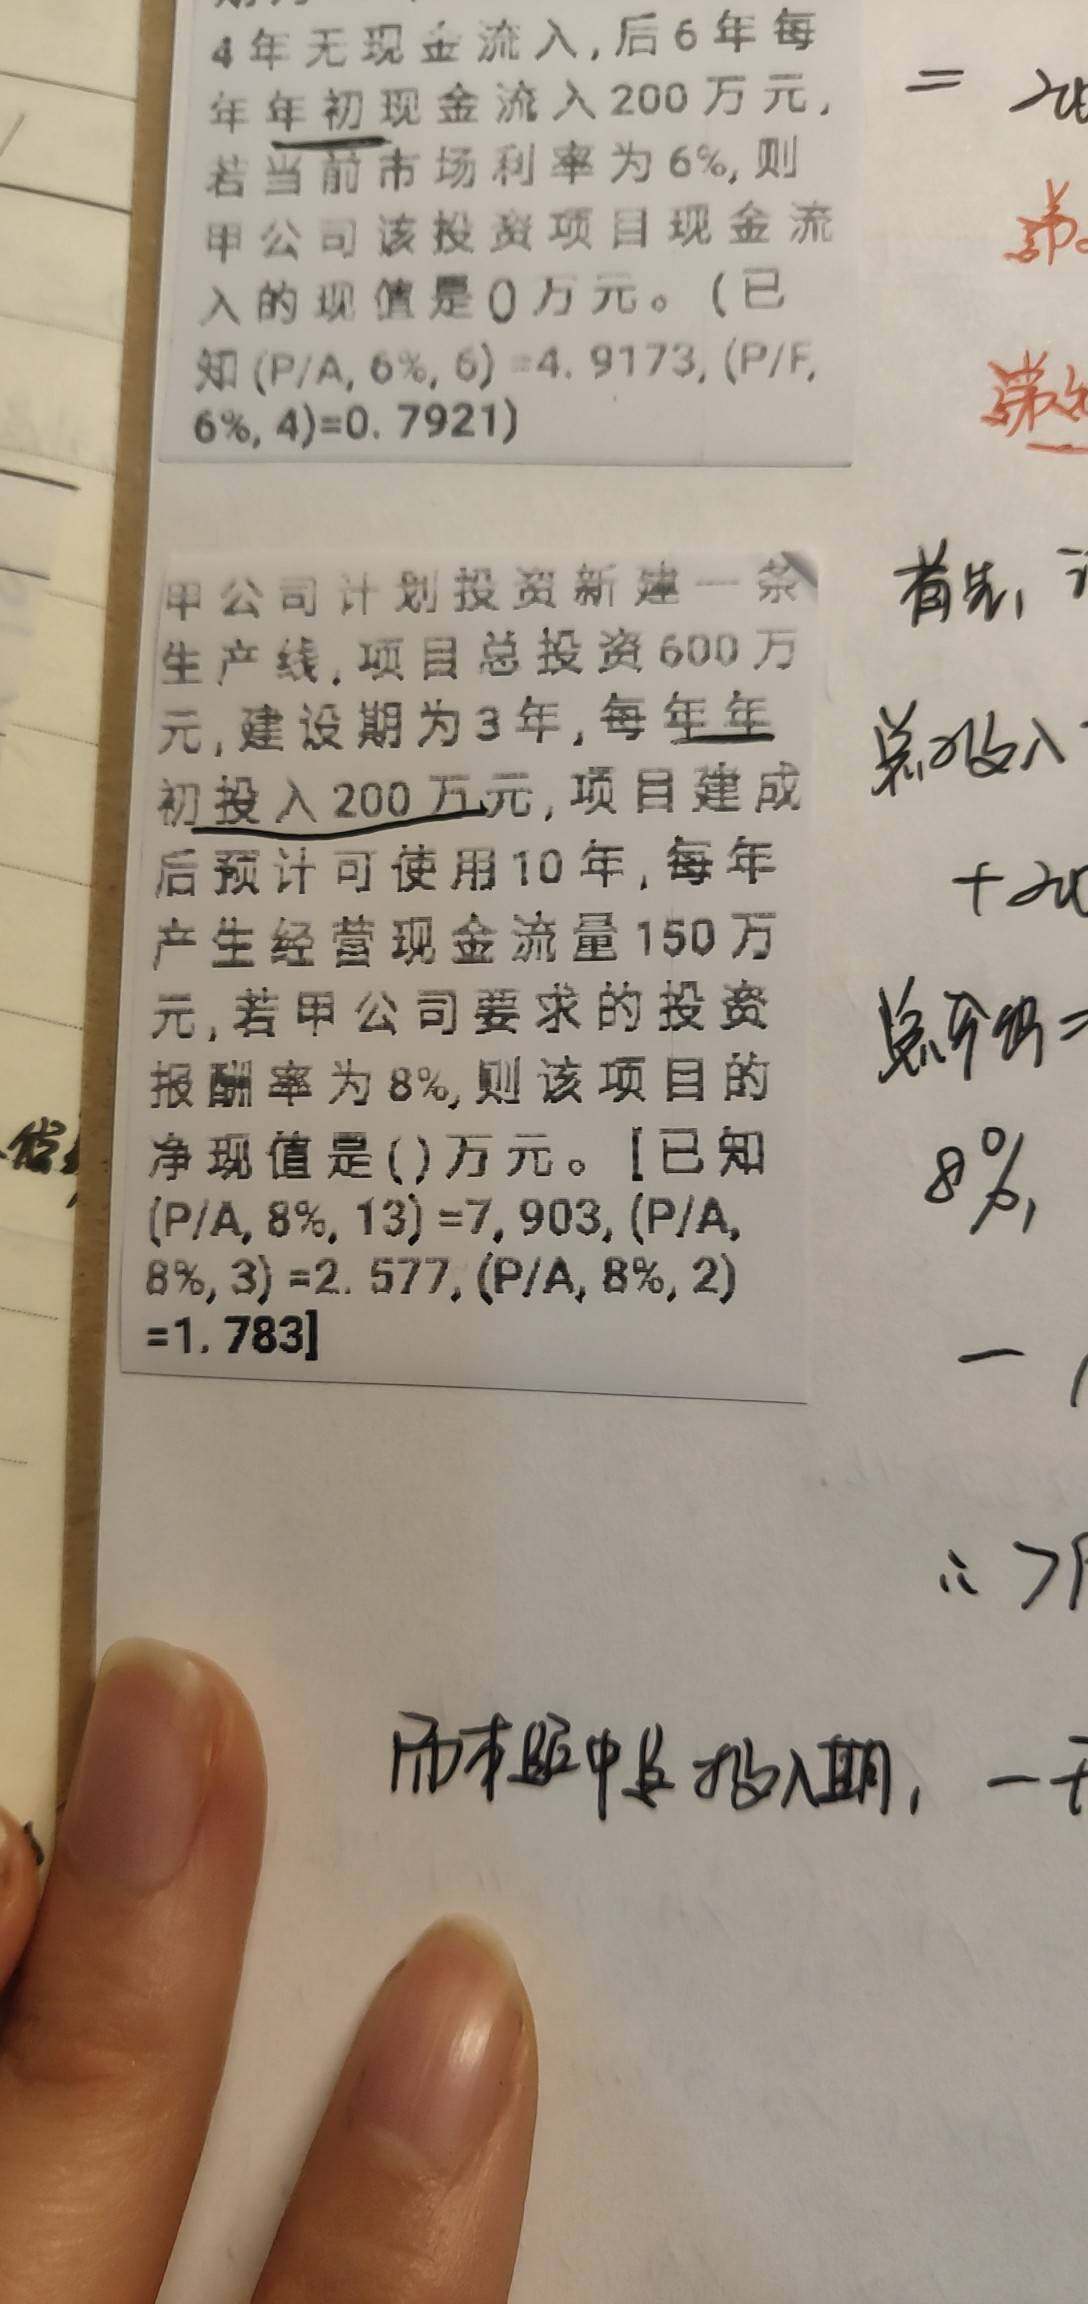 4年无现金流入,后6年每
年年初现金流入200万元,
若当前市场利率为6%,则
甲公司该投资项目现金流
入的现值是()万元。(已
知(P/A,6%,6)=4.9173,(P/F,
6%,4)=0.7921)
甲公司计划投资新建一条
生产线,项目总投资600万
元,建设期为3年,每年年
初投入200万元,项目建成
后预计可使用10年,每年
产生经营现金流量150万
元,若甲公司要求的投资
报酬率为8%,则该项目的
净现值是()万元。[已知
(P/A,8%,13)=7,903,(P/A,
8%,3)=2.577,(P/A,8%,2)
=1.783]
=
首先,
总收入
+
8%,
-
而本题中其投入期,